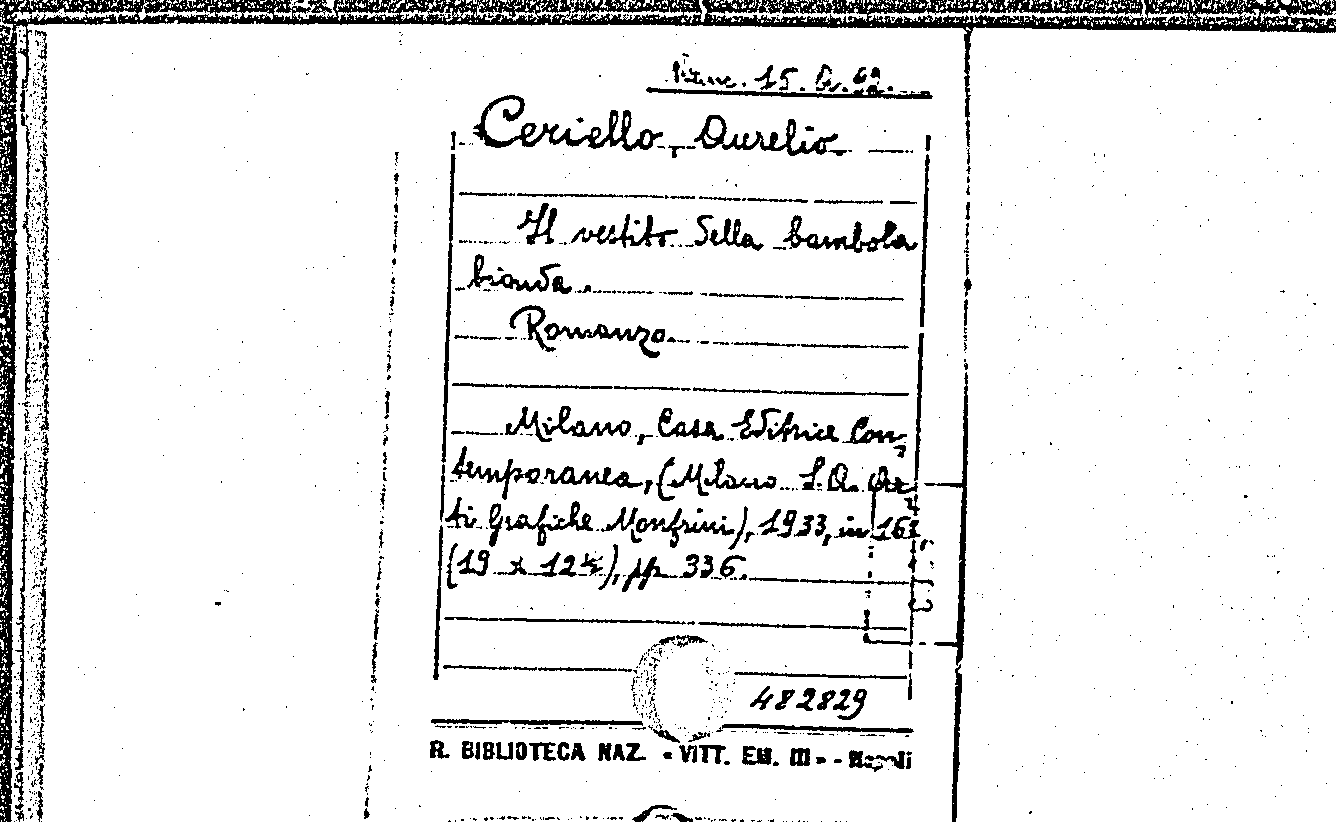 15. A. 62.
Ceriello, Aurelio.
Il vestito della bambola
bionda.
Romanzo.
Milano, Casa Editrice Con-
temporanea, (Milano S. A. Ar
ti Grafiche Monfrini), 1933, in 16º,
(19 x 12 ½), pp 336.
482829
R. BIBLIOTECA NAZ. « VITT. EM. III » - Napoli